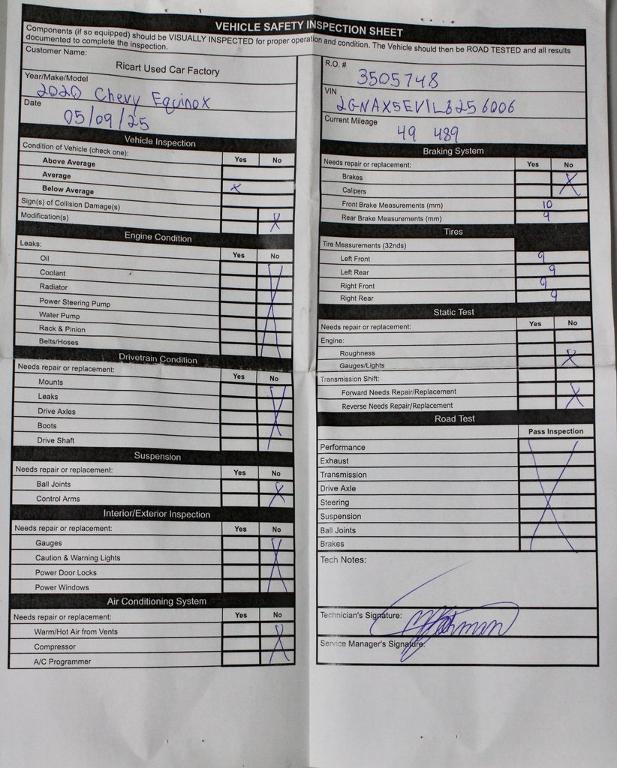 VEHICLE SAFETY INSPECTION SHEET
Components (if so equipped) should be VISUALLY INSPECTED for proper operation and condition. The Vehicle should then be ROAD TESTED and all results
documented to complete the inspection.
Customer Name:
Ricart Used Car Factory
Year/Make/Model
2020 Chevy Equinox
Date
05/09/25
R.O. #
3505748
VIN
2GNAX5EV1L6256006
Current Mileage
49 489
Vehicle Inspection
Condition of Vehicle (check one): Yes No
Above Average
Average
Below Average X
Sign(s) of Collision Damage(s)
Modification(s) X
Engine Condition
Leaks: Yes No
Oil
Coolant
Radiator
Power Steering Pump
Water Pump
Rack & Pinion
Belts/Hoses
X
Drivetrain Condition
Needs repair or replacement: Yes No
Mounts
Leaks
Drive Axles
Boots
Drive Shaft
X
Suspension
Needs repair or replacement: Yes No
Ball Joints
Control Arms
X
Interior/Exterior Inspection
Needs repair or replacement: Yes No
Gauges
Caution & Warning Lights
Power Door Locks
Power Windows
X
Air Conditioning System
Needs repair or replacement: Yes No
Warm/Hot Air from Vents
Compressor
A/C Programmer
X
Braking System
Needs repair or replacement: Yes No
Brakes
Calipers
X
Front Brake Measurements (mm) 10
Rear Brake Measurements (mm) 9
Tires
Tire Measurements (32nds)
Left Front 9
Left Rear 9
Right Front 9
Right Rear 9
Static Test
Needs repair or replacement: Yes No
Engine:
Roughness
Gauges/Lights
X
Transmission Shift:
Forward Needs Repair/Replacement
Reverse Needs Repair/Replacement
X
Road Test
Pass Inspection
Performance
Exhaust
Transmission
Drive Axle
Steering
Suspension
Ball Joints
Brakes
X
Tech Notes:
Technician's Signature:
Service Manager's Signature: